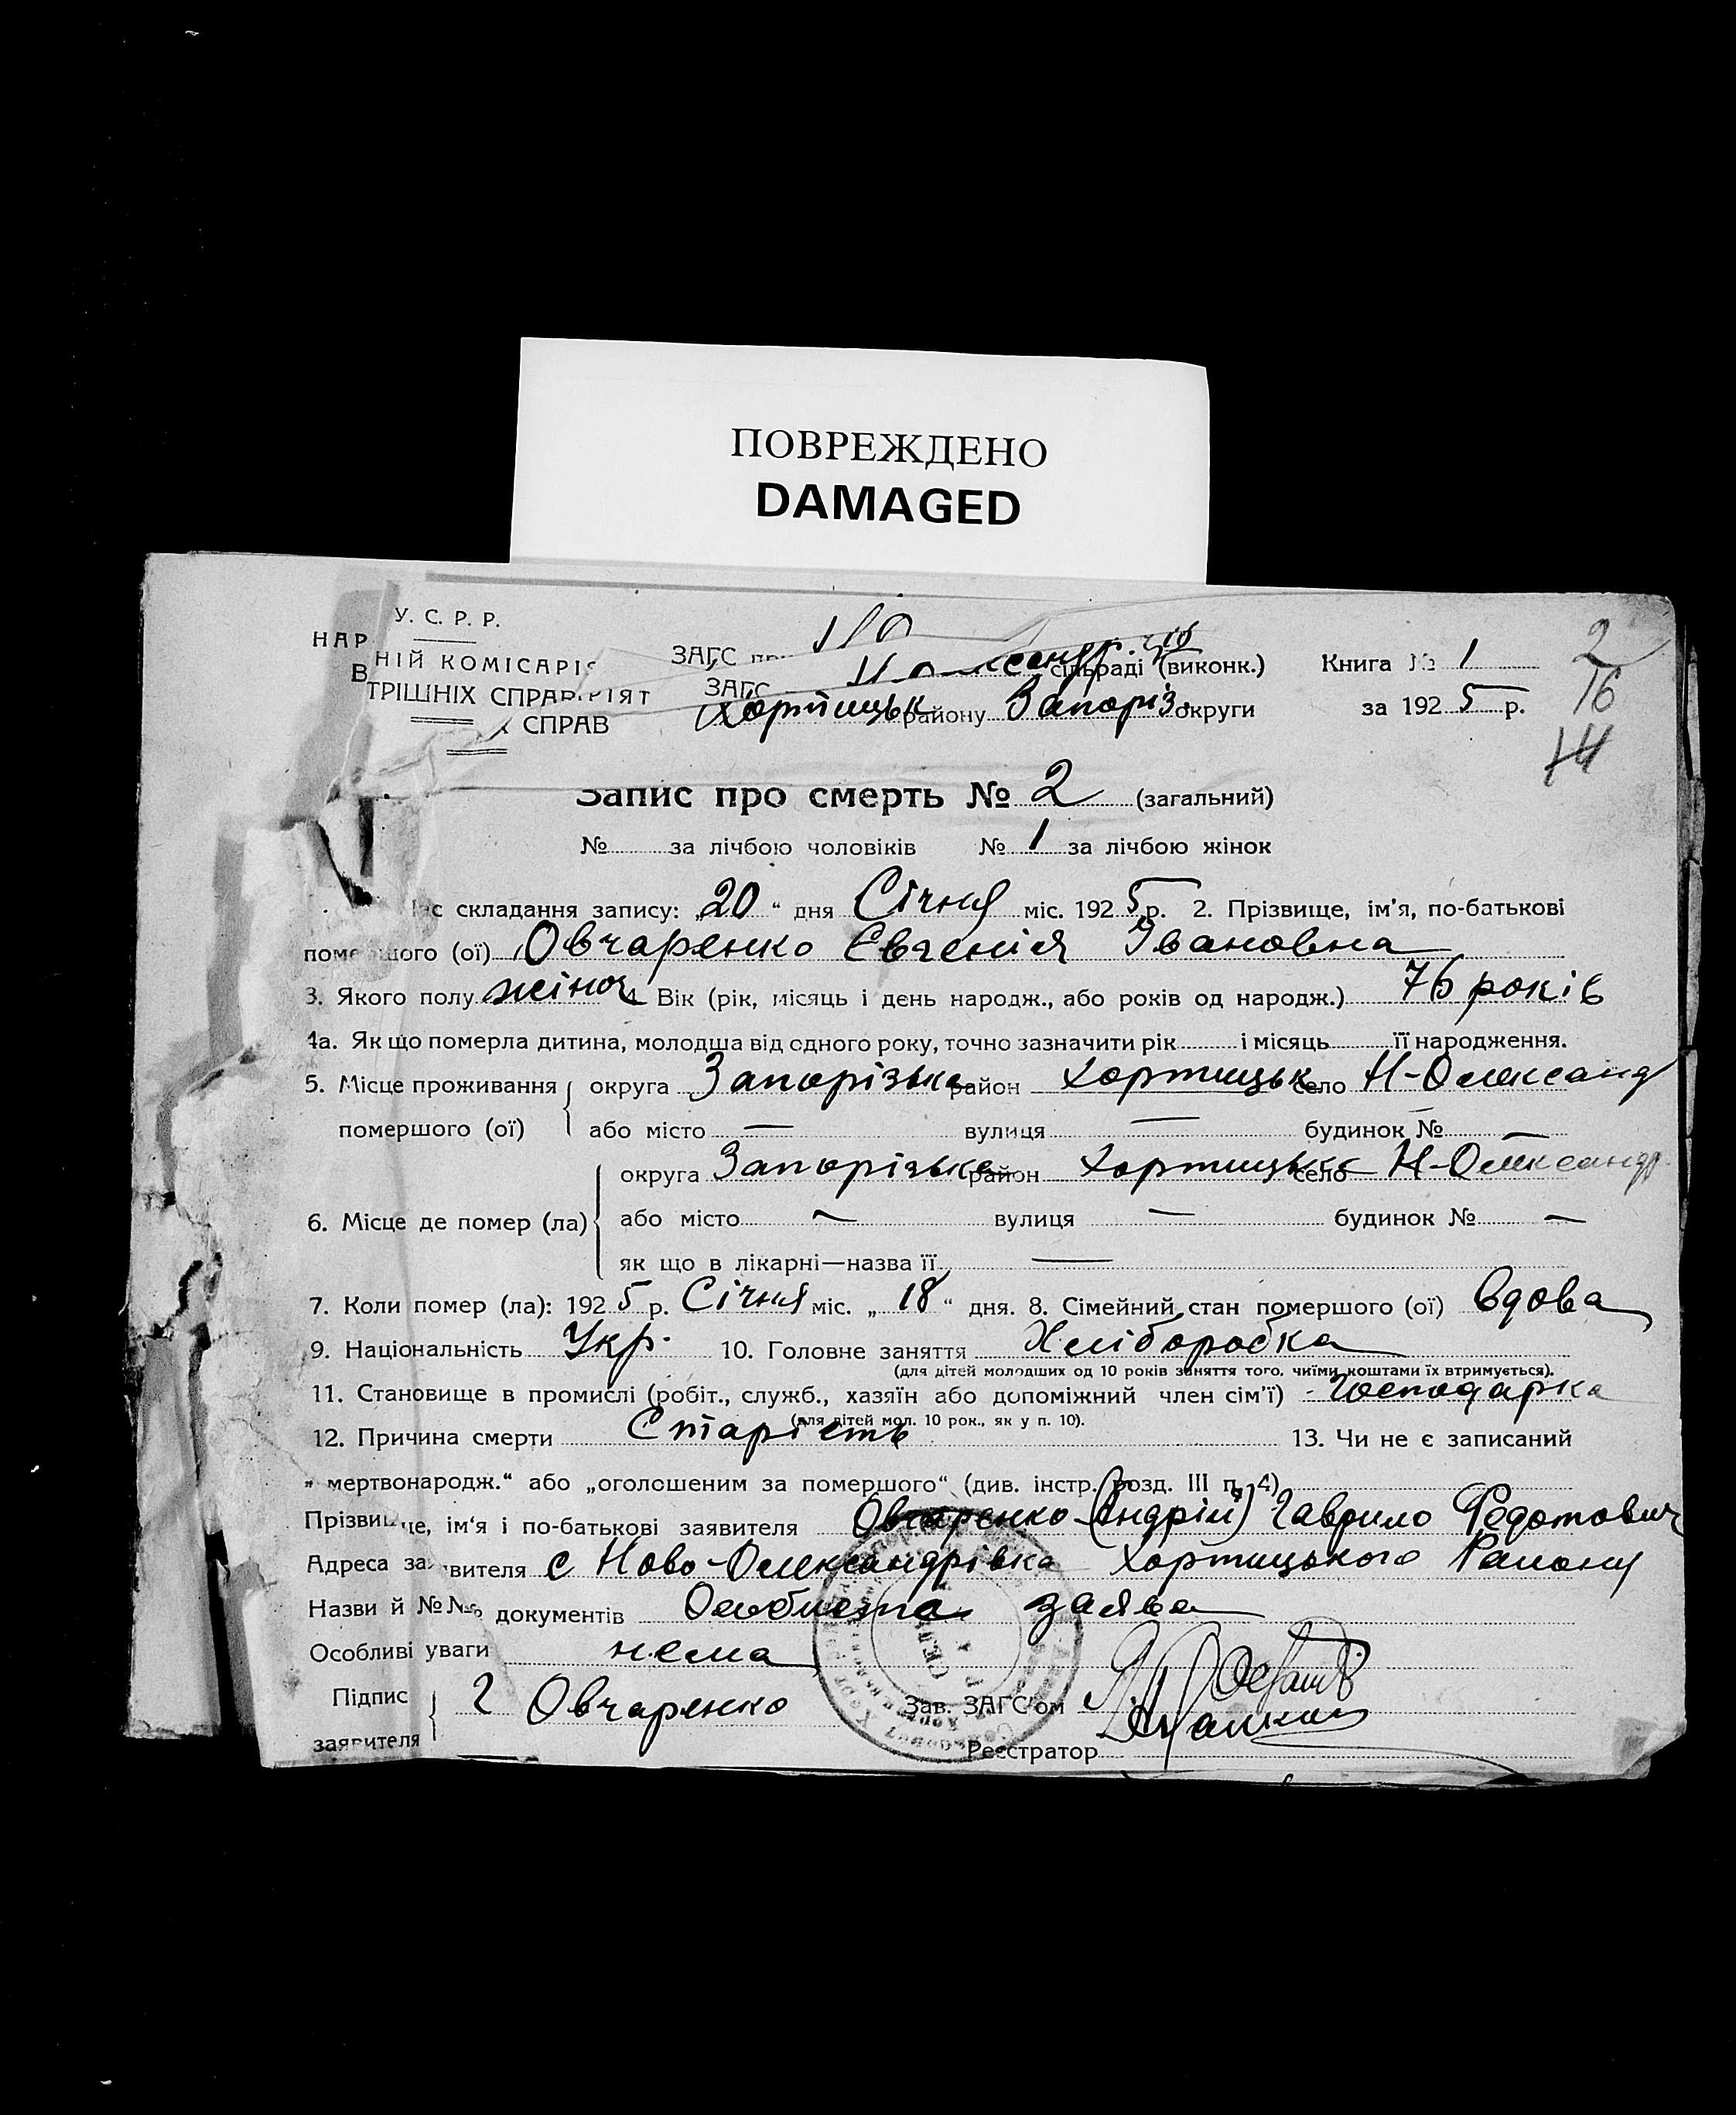 ПОВРЕЖДЕНО
DAMAGED
У. С. Р. Р.
НАР
НІЙ КОМІСАРІ
В
ТРІШНІХ СПРАВ
РІЯТ
СПРАВ
ЗАГС
сільраді (виконк.)
Книга № 1
2
ЗАГС
Хортицьк району Запоріз. округи
за 1925 р.
16
14
Запис про смерть № 2 (загальний)
№ за лічбою чоловіків № 1 за лічбою жінок
час складання запису: „20“ дня Січня міс. 1925 р. 2. Прізвище, ім'я, по-батькові
помершого (ої) Овчаренко Євгенія Івановна
3. Якого полу жіноч. Вік (рік, місяць і день народж., або років од народж.) 76 років
4а. Як що померла дитина, молодша від одного року, точно зазначити рік і місяць її народження.
5. Місце проживання округа Запорізька район Хортицьк село Н-Олександ
помершого (ої) або місто — вулиця — будинок № —
округа Запорізька район Хортицьк село Н-Олександр.
6. Місце де помер (ла) або місто — вулиця — будинок № —
як що в лікарні—назва її —
7. Коли помер (ла): 1925 р. Січня міс. „18“ дня. 8. Сімейний стан помершого (ої) вдова
9. Національність Укр. 10. Головне заняття Хліборобка
(для дітей молодших од 10 років заняття того, чиїми коштами їх втримується).
11. Становище в промислі (робіт., служб., хазяїн або допоміжний член сім'ї) Господарка
(для дітей мол. 10 рок., як у п. 10).
12. Причина смерти Старість 13. Чи не є записаний
„мертвонародж.“ або „оголошеним за помершого“ (див. інстр. розд. III п. 4)
Прізвище, ім'я і по-батькові заявителя Овчаренко (Андрій) Гаврило Федотович
Адреса заявителя с Ново-Олександрівка Хортицького Району
Назви й №№ документів Особиста заява
Особливі уваги нема
Підпис
заявителя
Г Овчаренко
Зав. ЗАГС'ом
Реєстратор